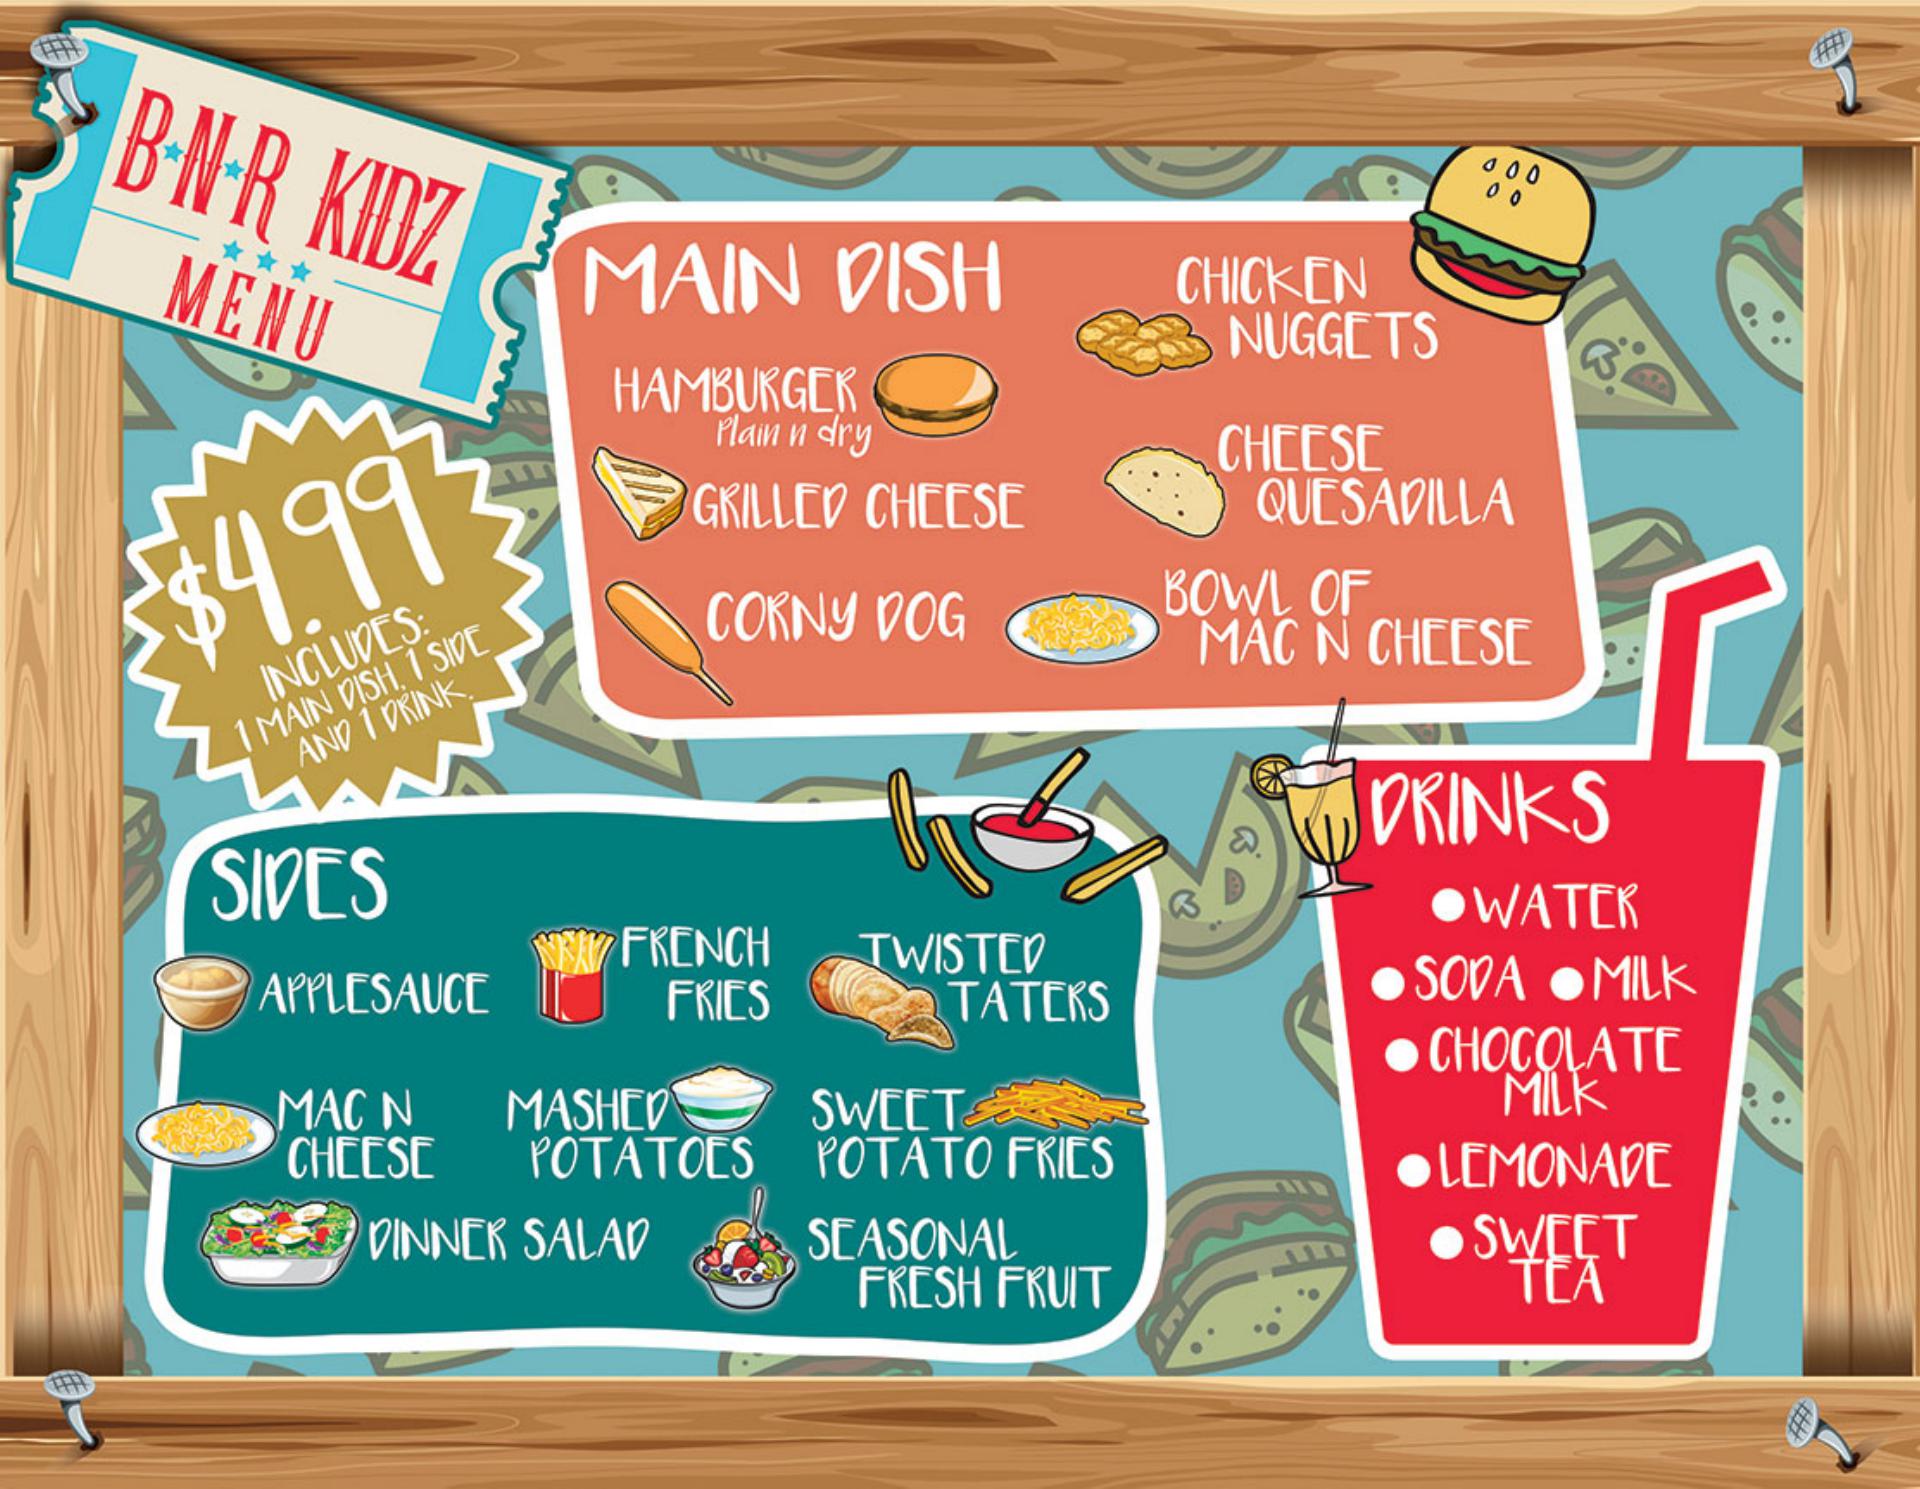 B★N★R KIDZ
MENU
$4.99
INCLUDES:
1 MAIN DISH, 1 SIDE
AND 1 DRINK.
MAIN DISH
HAMBURGER
Plain n dry
GRILLED CHEESE
CORNY DOG
CHICKEN
NUGGETS
CHEESE
QUESADILLA
BOWL OF
MAC N CHEESE
SIDES
APPLESAUCE
FRENCH
FRIES
TWISTED
TATERS
MAC N
CHEESE
MASHED
POTATOES
SWEET
POTATO FRIES
DINNER SALAD
SEASONAL
FRESH FRUIT
DRINKS
● WATER
● SODA ● MILK
● CHOCOLATE
MILK
● LEMONADE
● SWEET
TEA